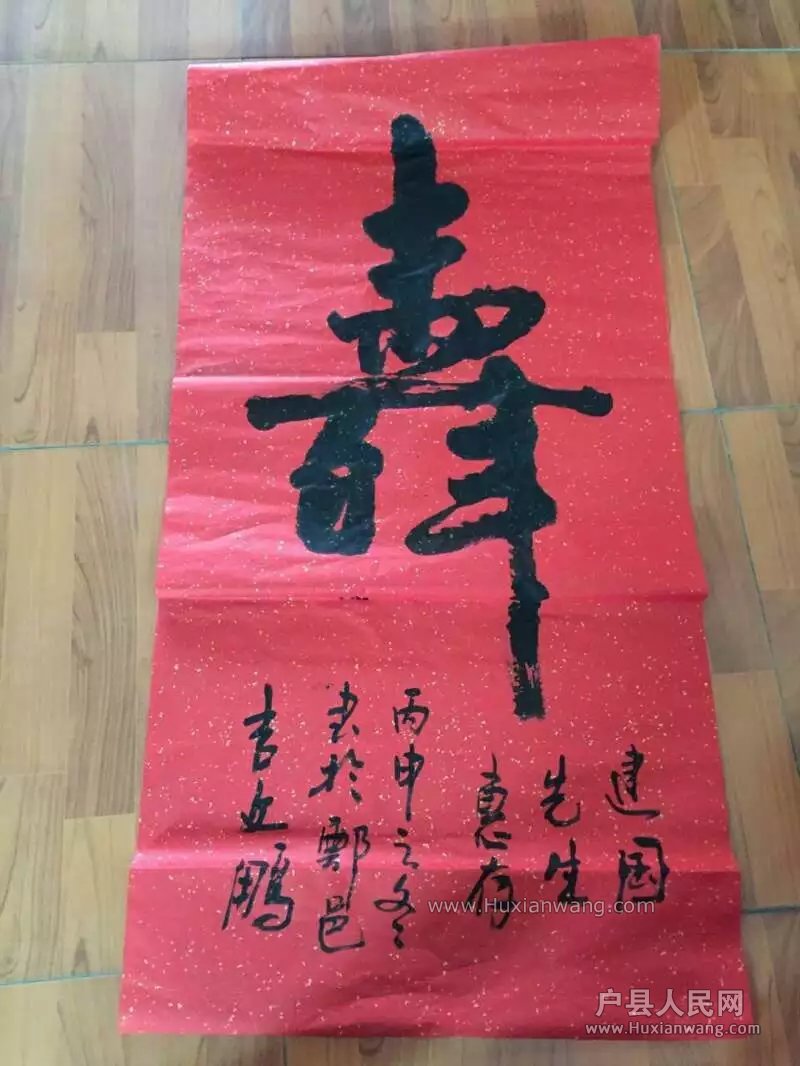 壽
建国
先生
惠存
丙申之冬
书於鄠邑
吉文鵬
www.Huxianwang.com
户县人民网
www.Huxianwang.com